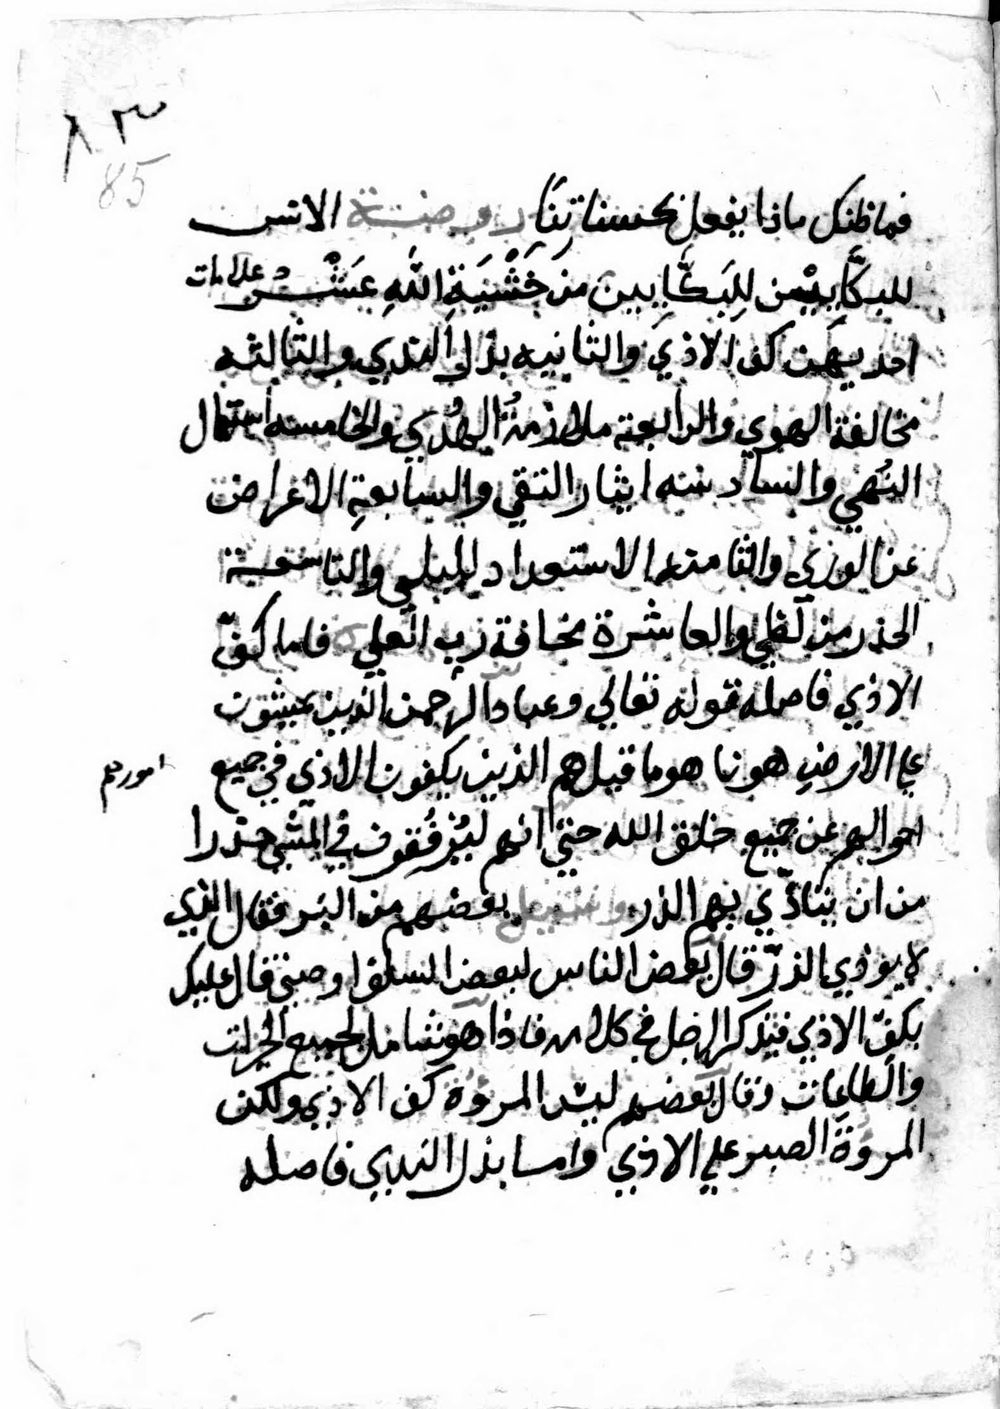 ٨٣
85
فما ظنك ماذا يفعل بحسناتِنَا روضة الانس
للبكَّايِيْن لِلبَكَّايين من خَشْيَةِ اللهِ عَشْر علامات
احديهَن كف الاذي والثانيه بذل الندي والثالثه
مخالفة الهوي والرابعة ملازمةُ الهُدي والخامسه استعمال
النُهَي والسادسه ايثار التقي والسابعةِ الاعراض
عن الوري والثامنه الاستعداد للبلي والتاسعة
الحذر من لظي والعاشرة مخافة رب العلي فاما كفّ
الاذي فاصله قوله تعالي وعباد الرحمن الذين يمشون
علي الارض هونا هو ما قيل هم الذين يكفون الاذي في جميع امورهم
احوالهم عن جميع خلق الله حتي انهم لَيُرْفُقون في المشي حذرا
من ان يتاذّي بهم الذر وسئيل بعضهم من البر فقال الذي
لا يوذي الذرّ قال بعض الناس لبعض السلف اوصني قال عليك
بكفّ الاذي فتذكر الرجل في كلامه فاذا هو شامل لجميع الخيرات
والطاعات وقال بعضهم ليس المروّة كف الاذي ولكن
المروّةَ الصبر علي الاذي واما بذل الندي فاصله